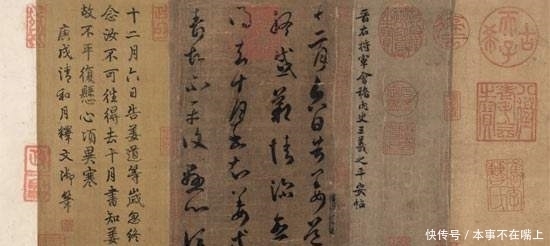 古希天子
八徵耄念之寶
晉右將軍會稽內史王羲之平安帖
十二月六日告姜道
終感歎情深念
得去十月書知姜等
壽故不平復懸心
十二月六日告姜道等歲忽終
念汝不可往得去十月書知姜
故不平復懸心頃異寒
庚戌清和月釋文御筆
快传号 / 本事不在嘴上